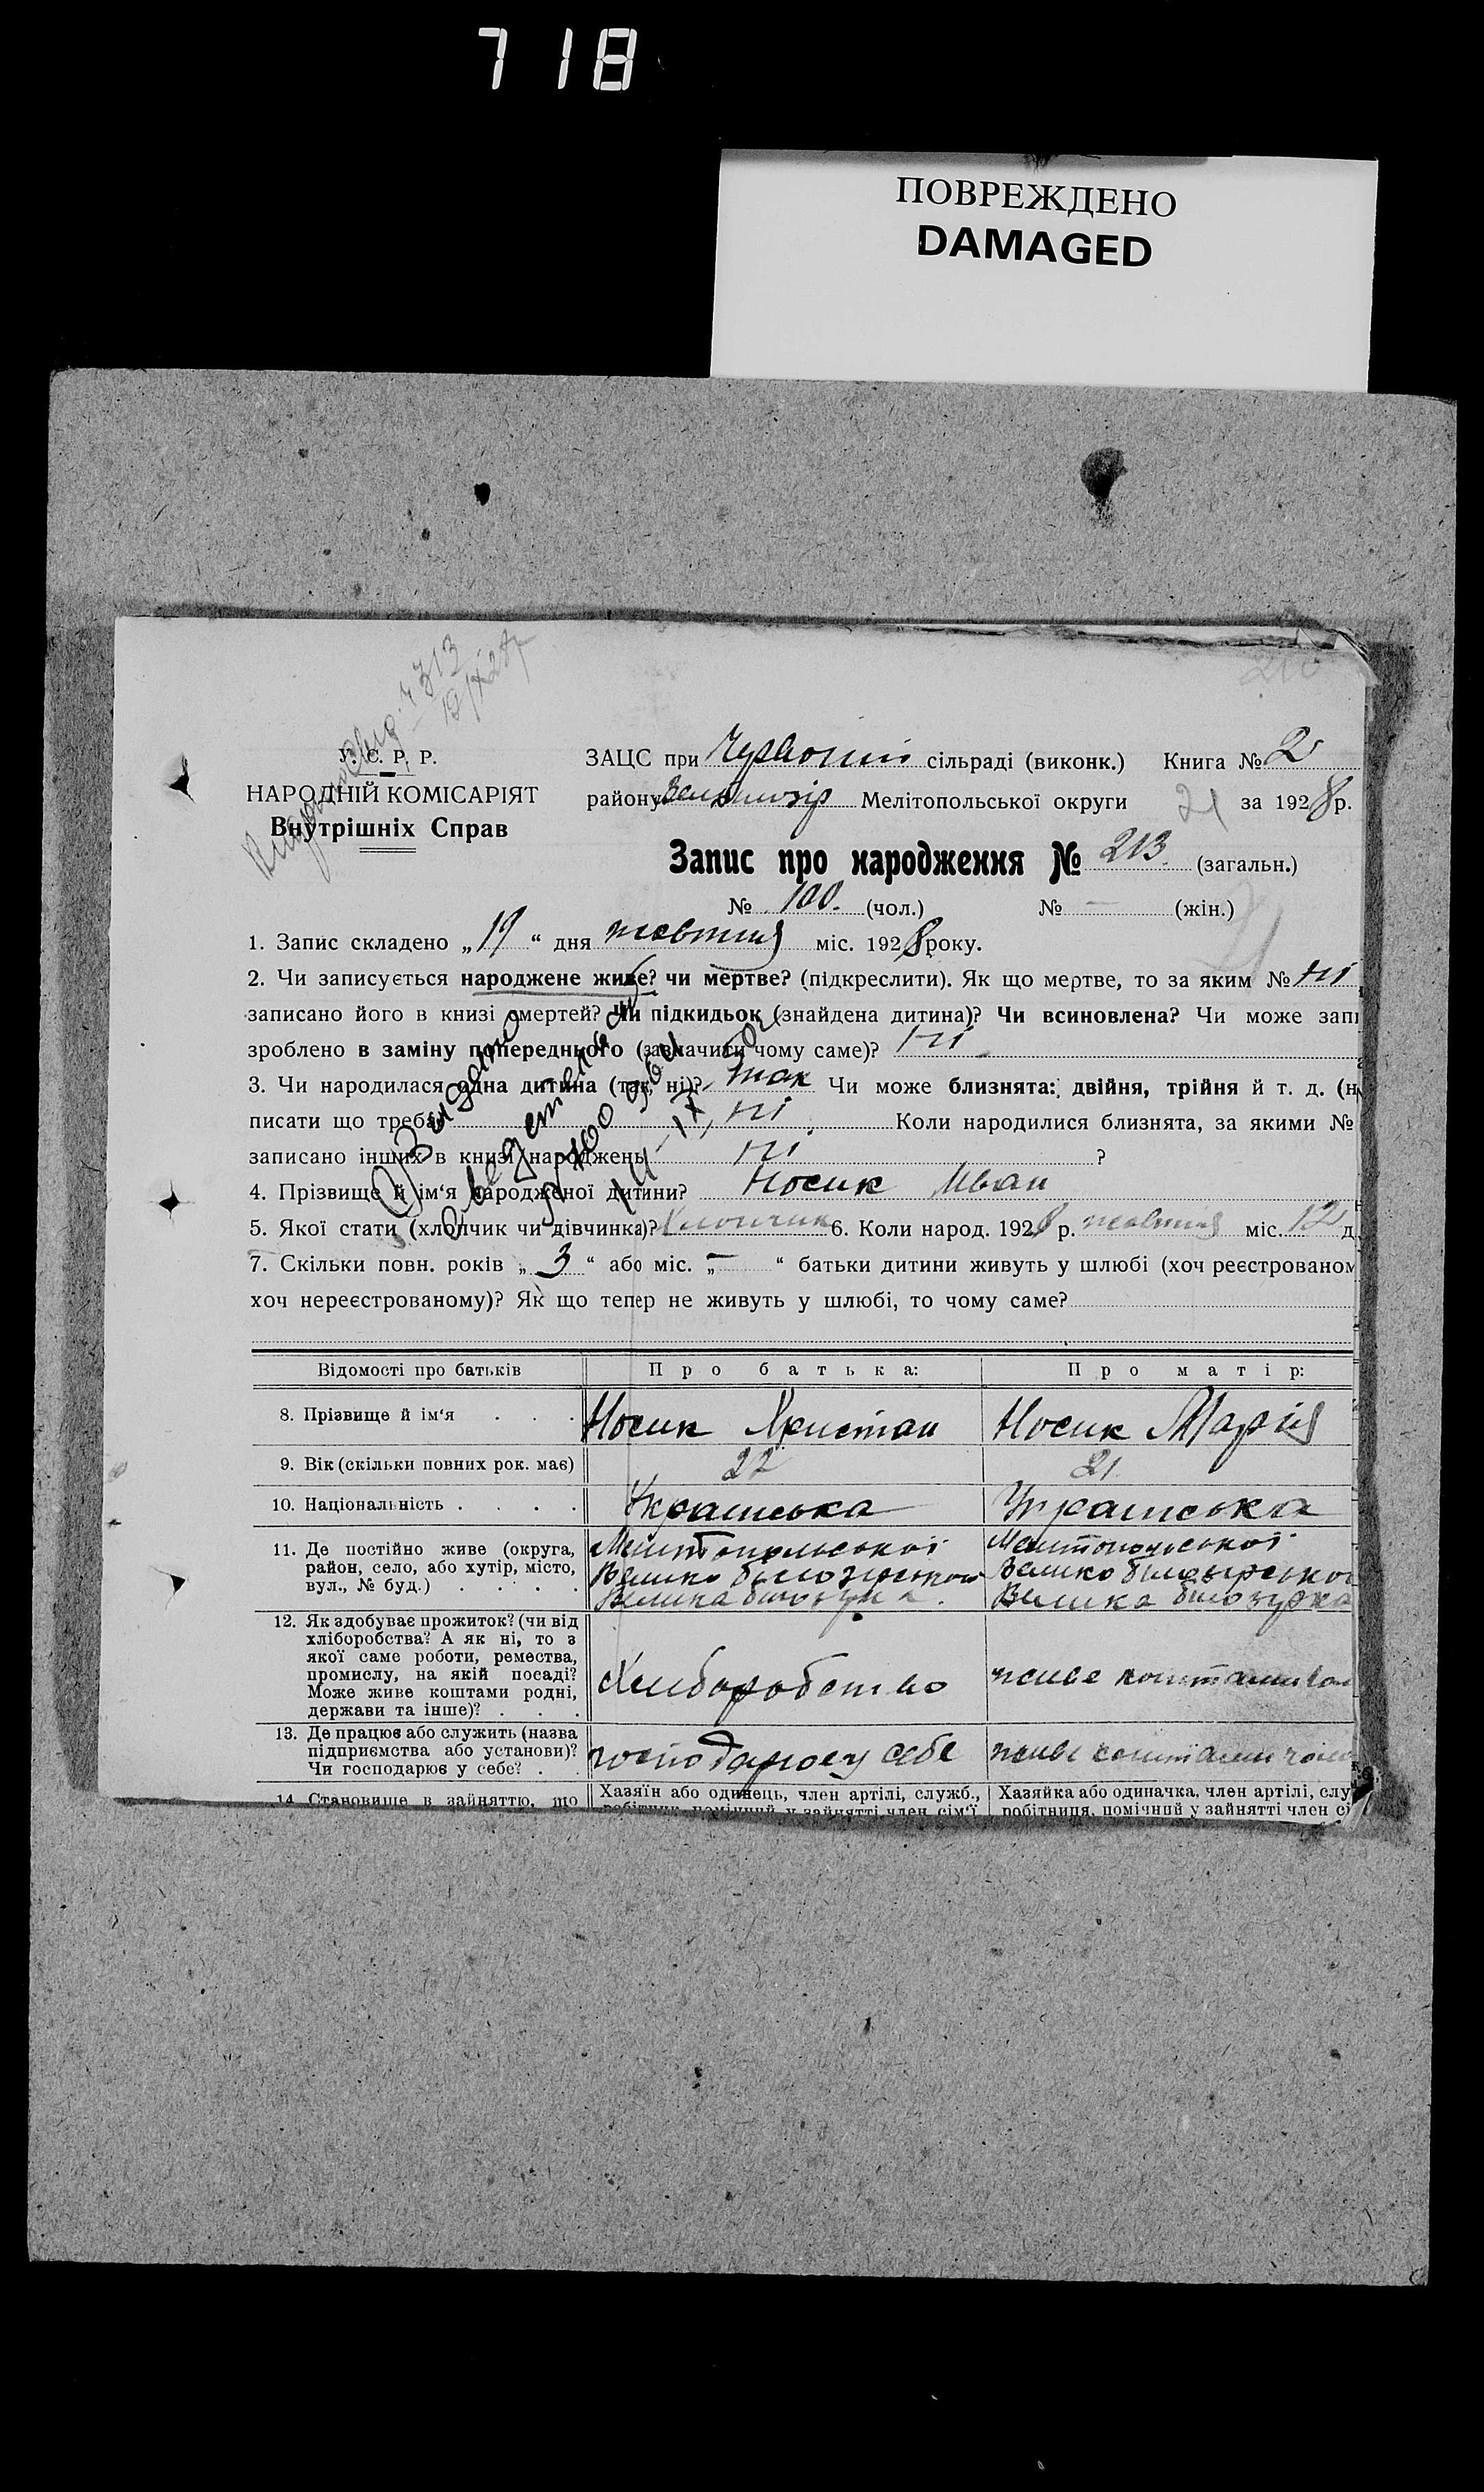 718
ПОВРЕЖДЕНО
DAMAGED
У. С. Р. Р.
НАРОДНІЙ КОМІСАРІЯТ
Внутрішніх Справ
ЗАЦС при Червоній сільраді (виконк.) Книга № 2
району Мелітопольської округи 21 за 1928 р.
Запис про народження № 213 (загальн.)
№ 100. (чол.) № — (жін.)
1. Запис складено „19“ дня жовтня міс. 1928 року.
2. Чи записується народжене живе? чи мертве? (підкреслити). Як що мертве, то за яким № ні
записано його в книзі смертей? Чи підкидьок (знайдена дитина)? Чи всиновлена? Чи може зап
зроблено в заміну попереднього (зазначити чому саме)? ні
3. Чи народилася одна дитина (так, ні)? так Чи може близнята: двійня, трійня й т. д. (н
писати що треба) ні Коли народилися близнята, за якими №
записано інших в книзі народжень ні ?
4. Прізвище й ім‘я народженої дитини? Носик Иван
5. Якої стати (хлопчик чи дівчинка)? Хлопчик 6. Коли народ. 1928 р. жовтня міс. 12 д
7. Скільки повн. років „3“ або міс. „—“ батьки дитини живуть у шлюбі (хоч реєстрованом
хоч нереєстрованому)? Як що тепер не живуть у шлюбі, то чому саме?
Відомості про батьків Про батька: Про матір:
8. Прізвище й ім‘я . . . Носик Носик Марія
9. Вік (скільки повних рок. має) 22 21
10. Національність . . . . Українська Українська
11. Де постійно живе (округа, район, село, або хутір, місто, вул., № буд.) . . . .
Мелітопольскої
Велико білозірської
Велика білозірка.
Мелітопольської
Велико білозірської
Велика білозурка
12. Як здобуває прожиток? (чи від
хліборобства? А як ні, то з
якої саме роботи, ремества,
промислу, на якій посаді?
Може живе коштами родні,
держави та інше)? . . .
Хліборобство
живе коштами
13. Де працює або служить (назва
підприємства або установи)?
Чи господарює у себе? . .
господарює у себе
живе коштами
14. Становище в зайняттю, що
Хазяїн або одинець, член артілі, служб.,
робітник, помічний у зайнятті член сім‘ї
Хазяйка або одиначка, член артілі, слу
робітниця, помічний у зайнятті член сі